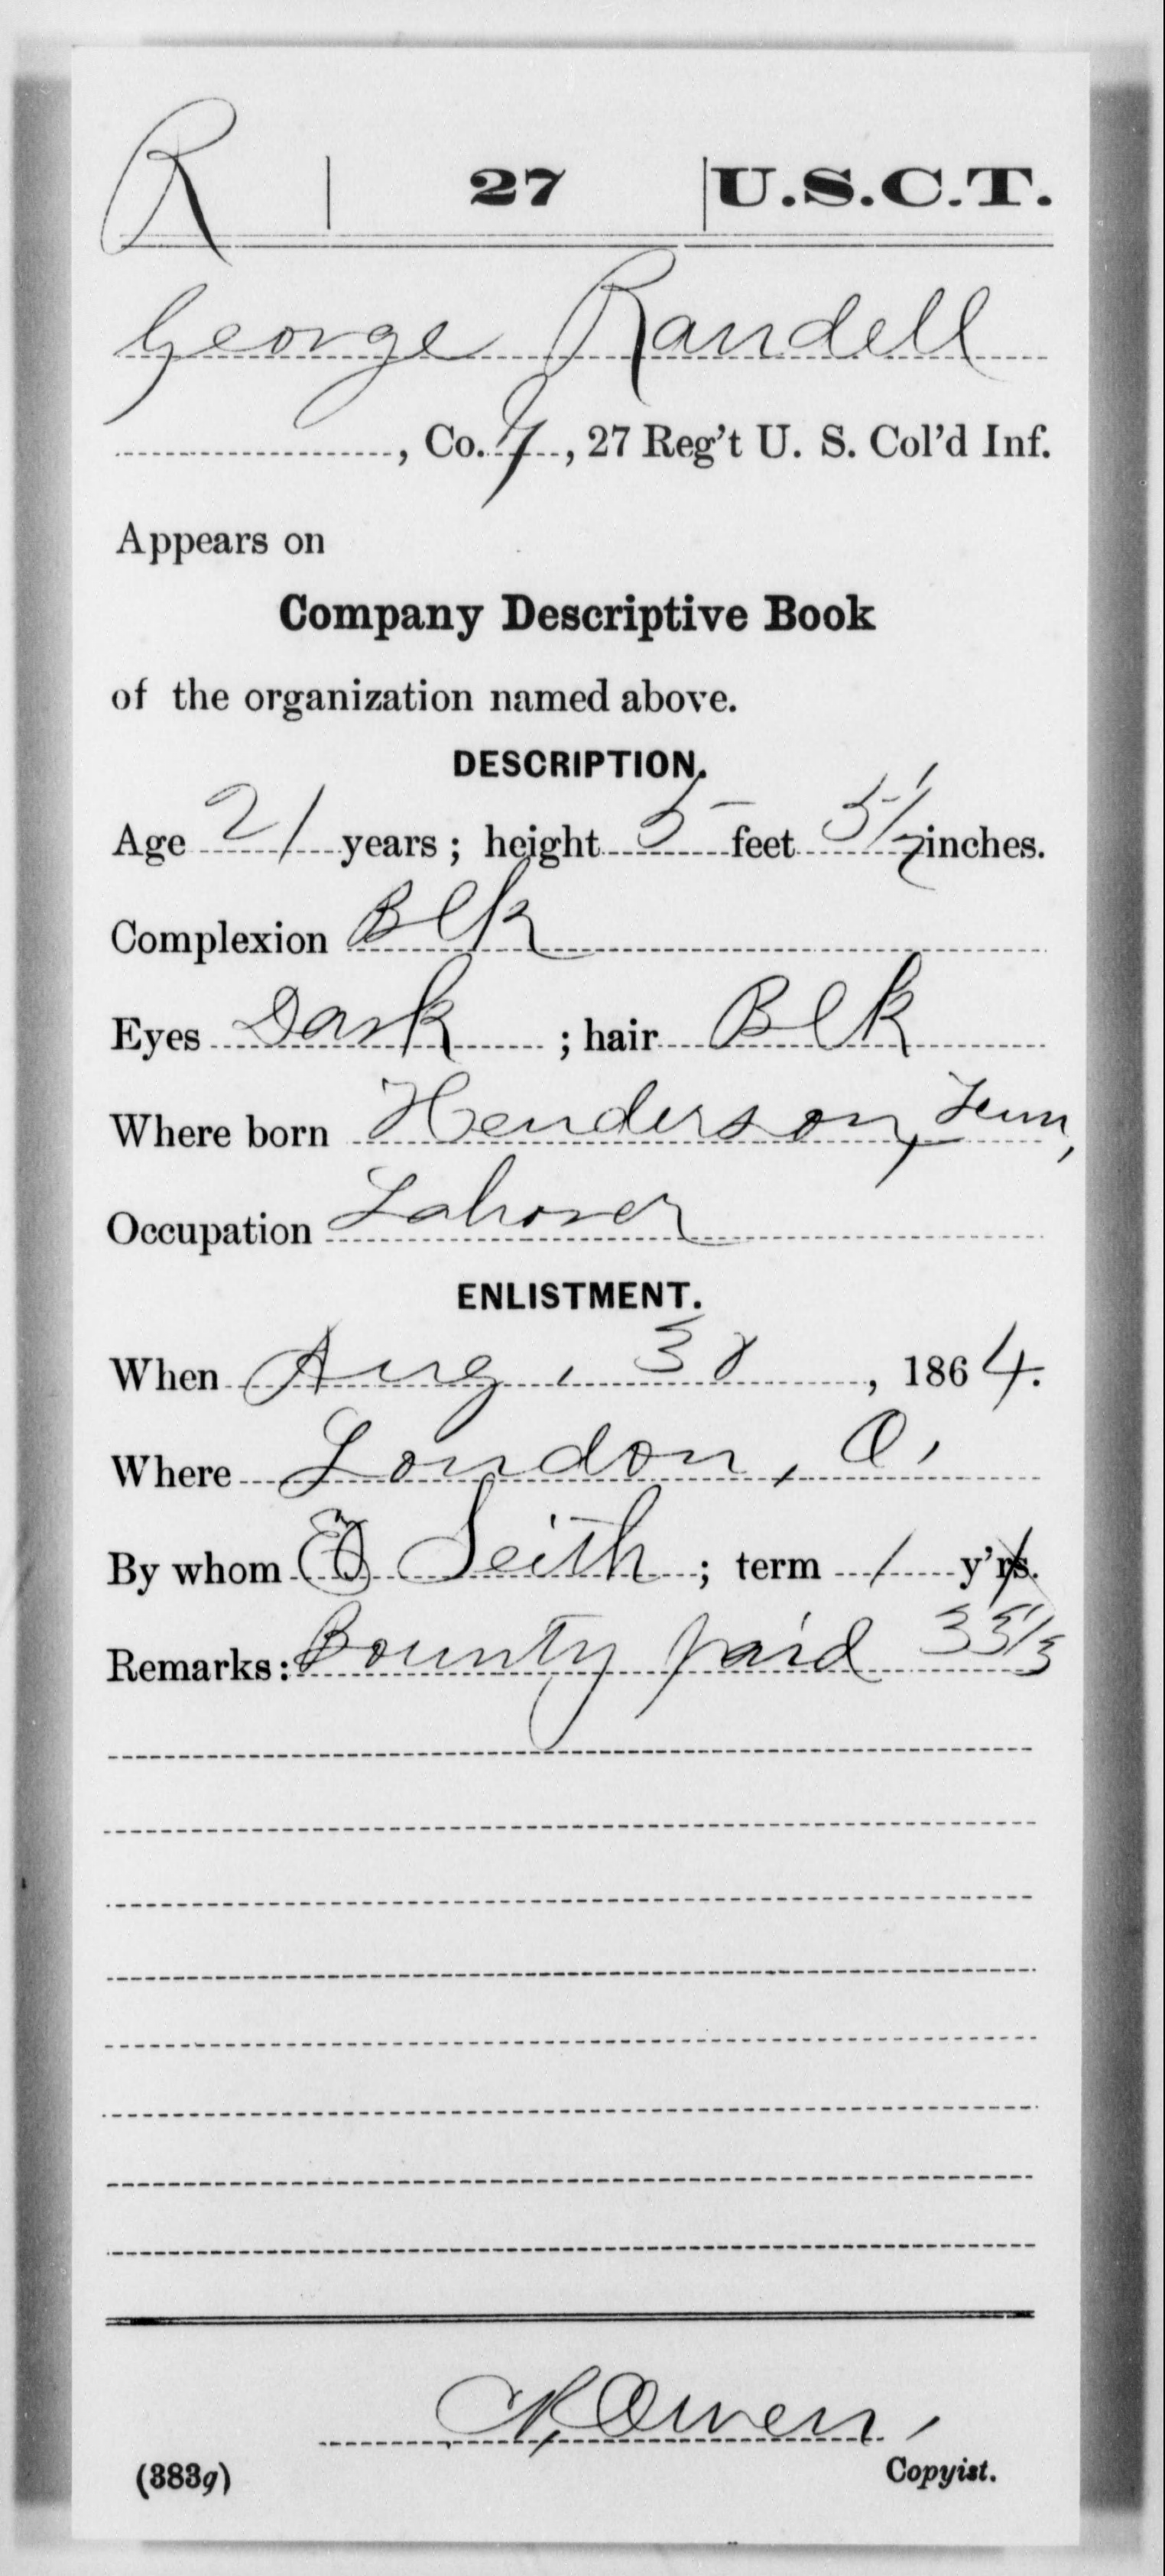 R | 27 | U.S.C.T.
George Randell
, Co. , 27 Reg't U. S. Col'd Inf.
Appears on
Company Descriptive Book
of the organization named above.
DESCRIPTION.
Age 21 years; height 5 feet 5 1/2 inches.
Complexion Blk
Eyes Dark ; hair Blk
Where born Henderson, Tenn,
Occupation Laborer
ENLISTMENT.
When Aug. , 1864.
Where London, O.
By whom Seith ; term 1 y'rs.
Remarks: Bounty paid 33 1/3
Owen,
(383g) Copyist.